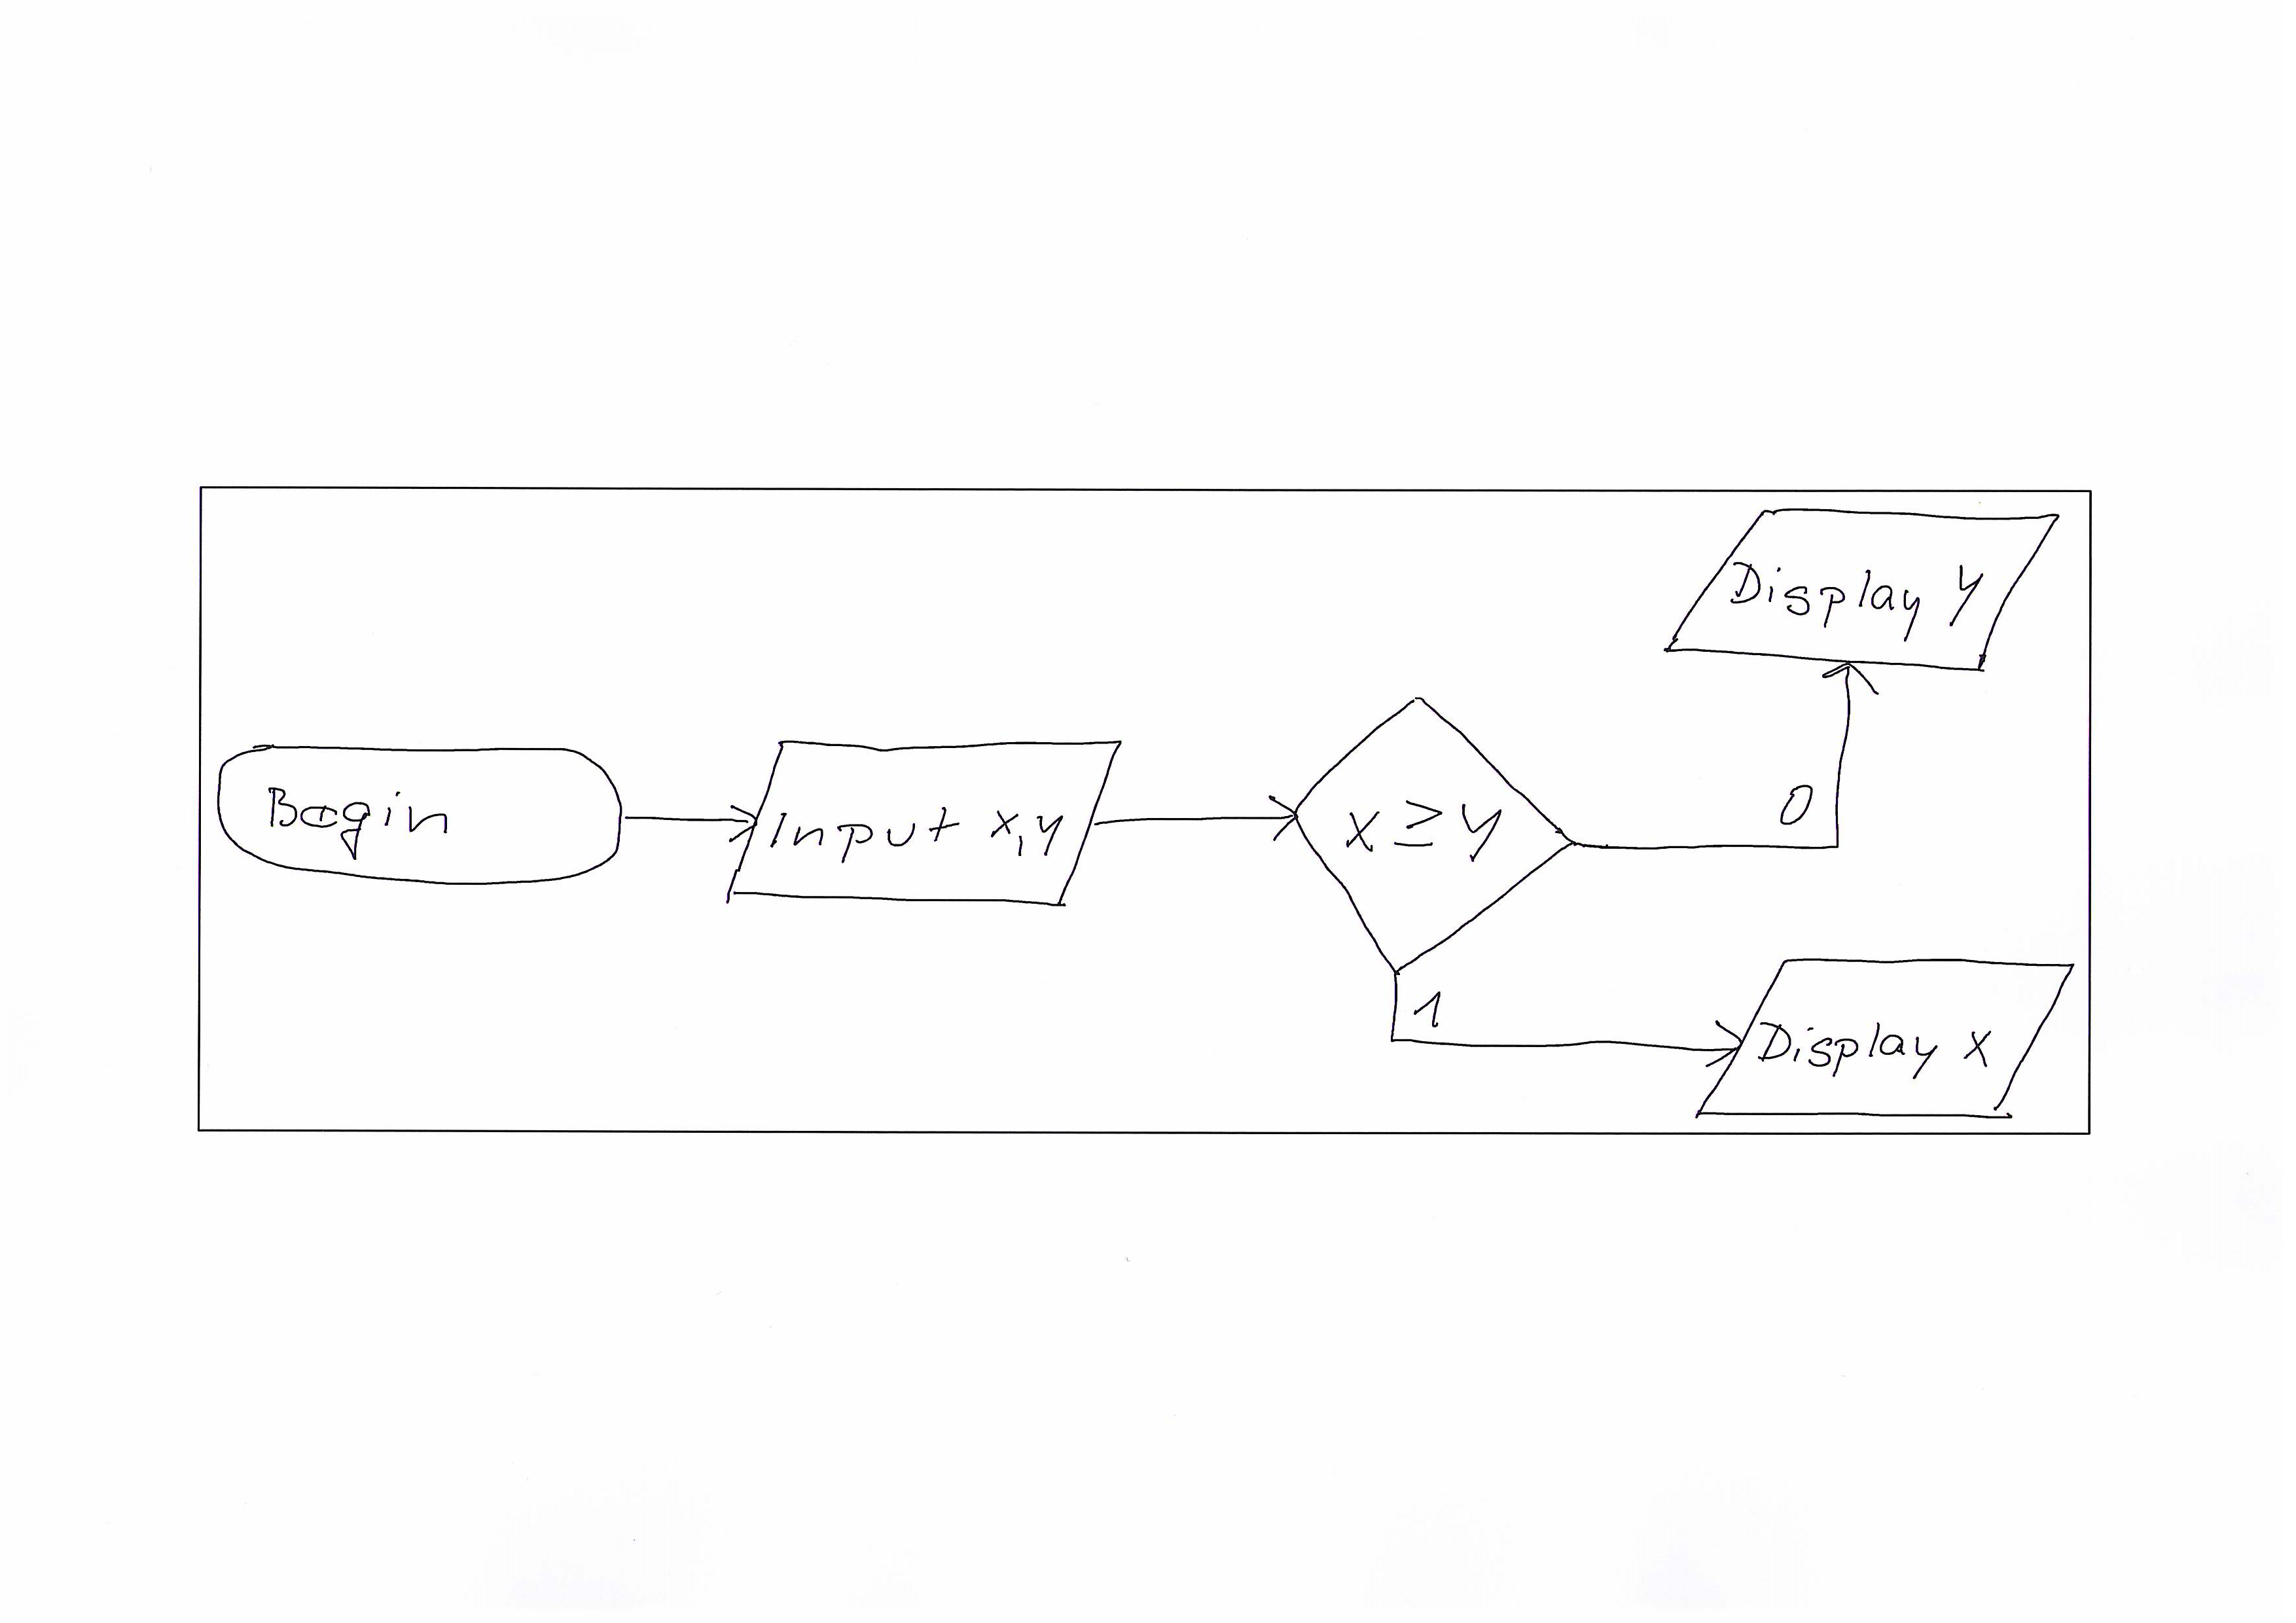 Begin
Input x,y
x ≥ y
0
Display y
1
Display x